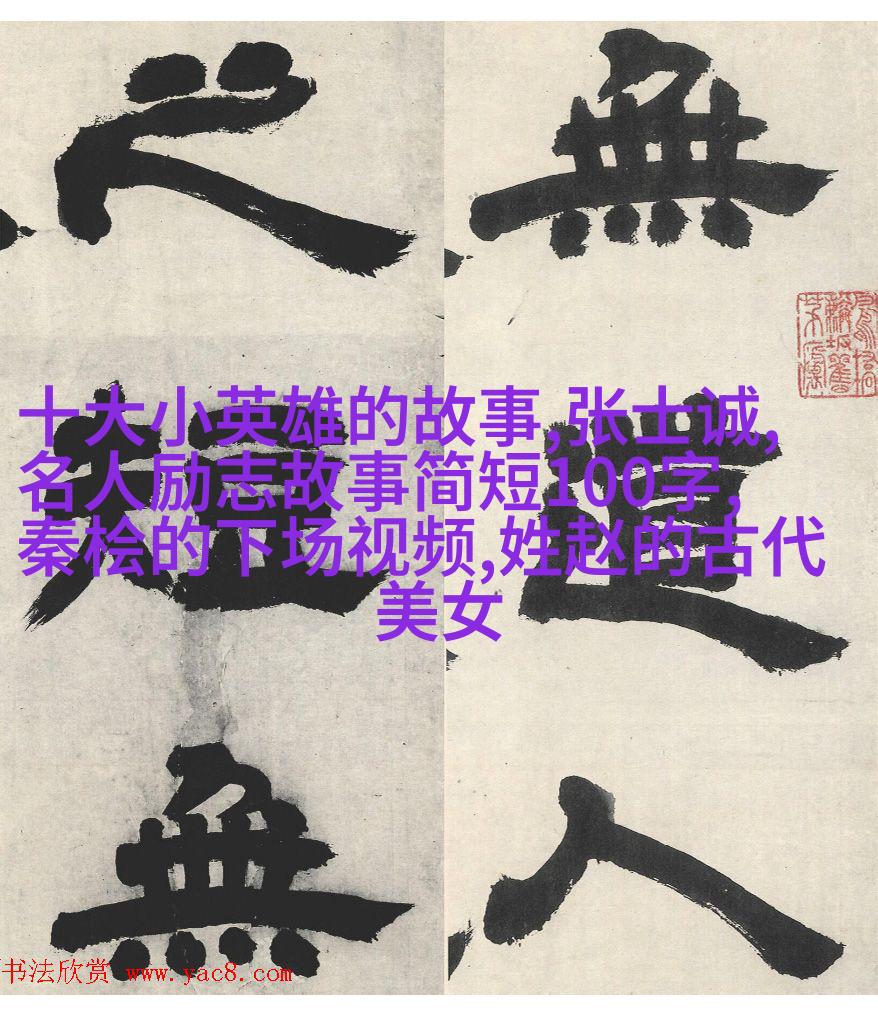 無道人
之短無
十大小英雄的故事,张士诚,
名人励志故事简短100字,
秦桧的下场视频,姓赵的古代
美女
书法欣赏 www.yac8.com